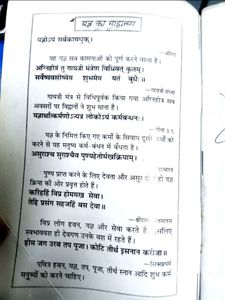 यज्ञ का माहात्म्य
यज्ञोऽयं सर्वकामधुक्।
यह यज्ञ सब कामनाओं को पूर्ण करने वाला है।
अग्निहोत्रं तु गायत्री मंत्रेण विधिवत् कृतम्।
सर्वेष्ववसरेष्वेव शुभमेव यतं बुधैः॥
गायत्री मंत्र से विधिपूर्वक किया गया अग्निहोत्र सब
अवसरों पर विद्वानों ने शुभ माना है।
यज्ञार्थात्कर्मणोऽन्यत्र लोकोऽयं कर्मबन्धनः।
—गीता ३.९
यज्ञ के निमित्त किए गए कर्मों के सिवाय दूसरे कर्मों को
करने से यह मनुष्य कर्म-बंधन में बँधता है।
असुराश्च सुराश्चैव पुण्यहेतोर्मखक्रियाम्।
पुण्य प्राप्त करने के लिए देवता और असुर दोनों ही यज्ञ
क्रिया को ओर प्रवृत होते हैं।
करिहहिं विप्र होममख सेवा।
तेहि प्रसंग सहजहि बस देवा॥
विप्र लोग हवन, यज्ञ और सेवा करते हैं,
स्वभाववश ही देवगण उनके वश में रहते हैं।
होम जग उरध तप पूजा। कोटि तीर्थ इसनान करीजा॥
पवित्र हवन, यज्ञ, तप, पूजा, तीर्थ स्नान आदि शुभ कर्म
मनुष्यों को करने चाहिए।